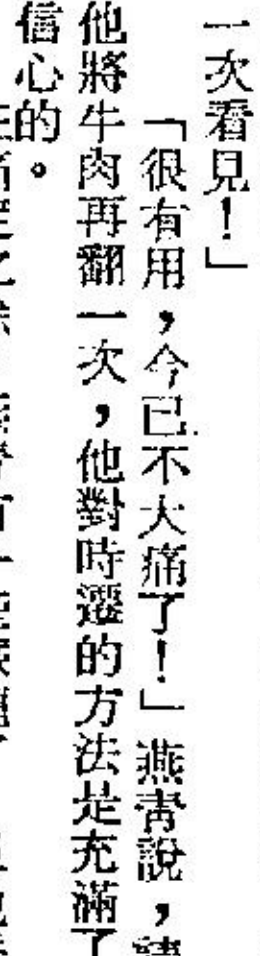 一次看見！」
「很有用，今已不大痛了！」燕青說，
他將牛肉再翻一次，他對時遷的方法是充滿了
信心的。